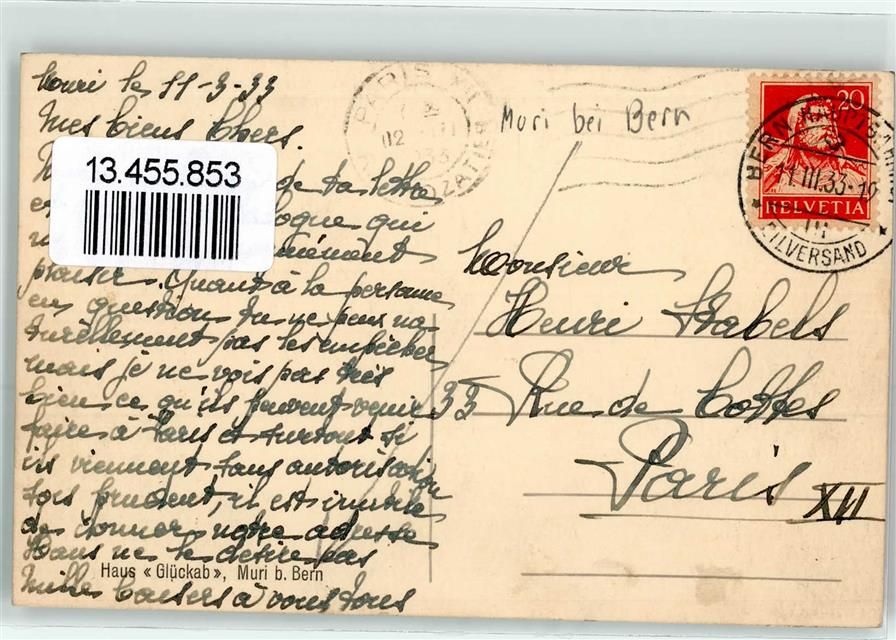 Muri le 11-3-33
Mes biens Chers.
13.455.853
de ta lettre
qui
plaisir. Quant à la personne
en question tu ne peus na
turellement pas les empêcher
mais je ne vois pas très
bien ce qu'ils peuvent venir
faire à Paris et surtout si
ils viennent sans autorisation
sois prudent, il est inutile
de donner notre adresse
Hans ne le désire pas
Haus « Glückab », Muri b. Bern
Mille baisers à vous tous
PARIS XII
Muri bei Bern
20
HELVETIA
BERN
11.III.33
BRIEFVERSAND
Monsieur
Henri
33 Rue de Cottes
Paris
XII